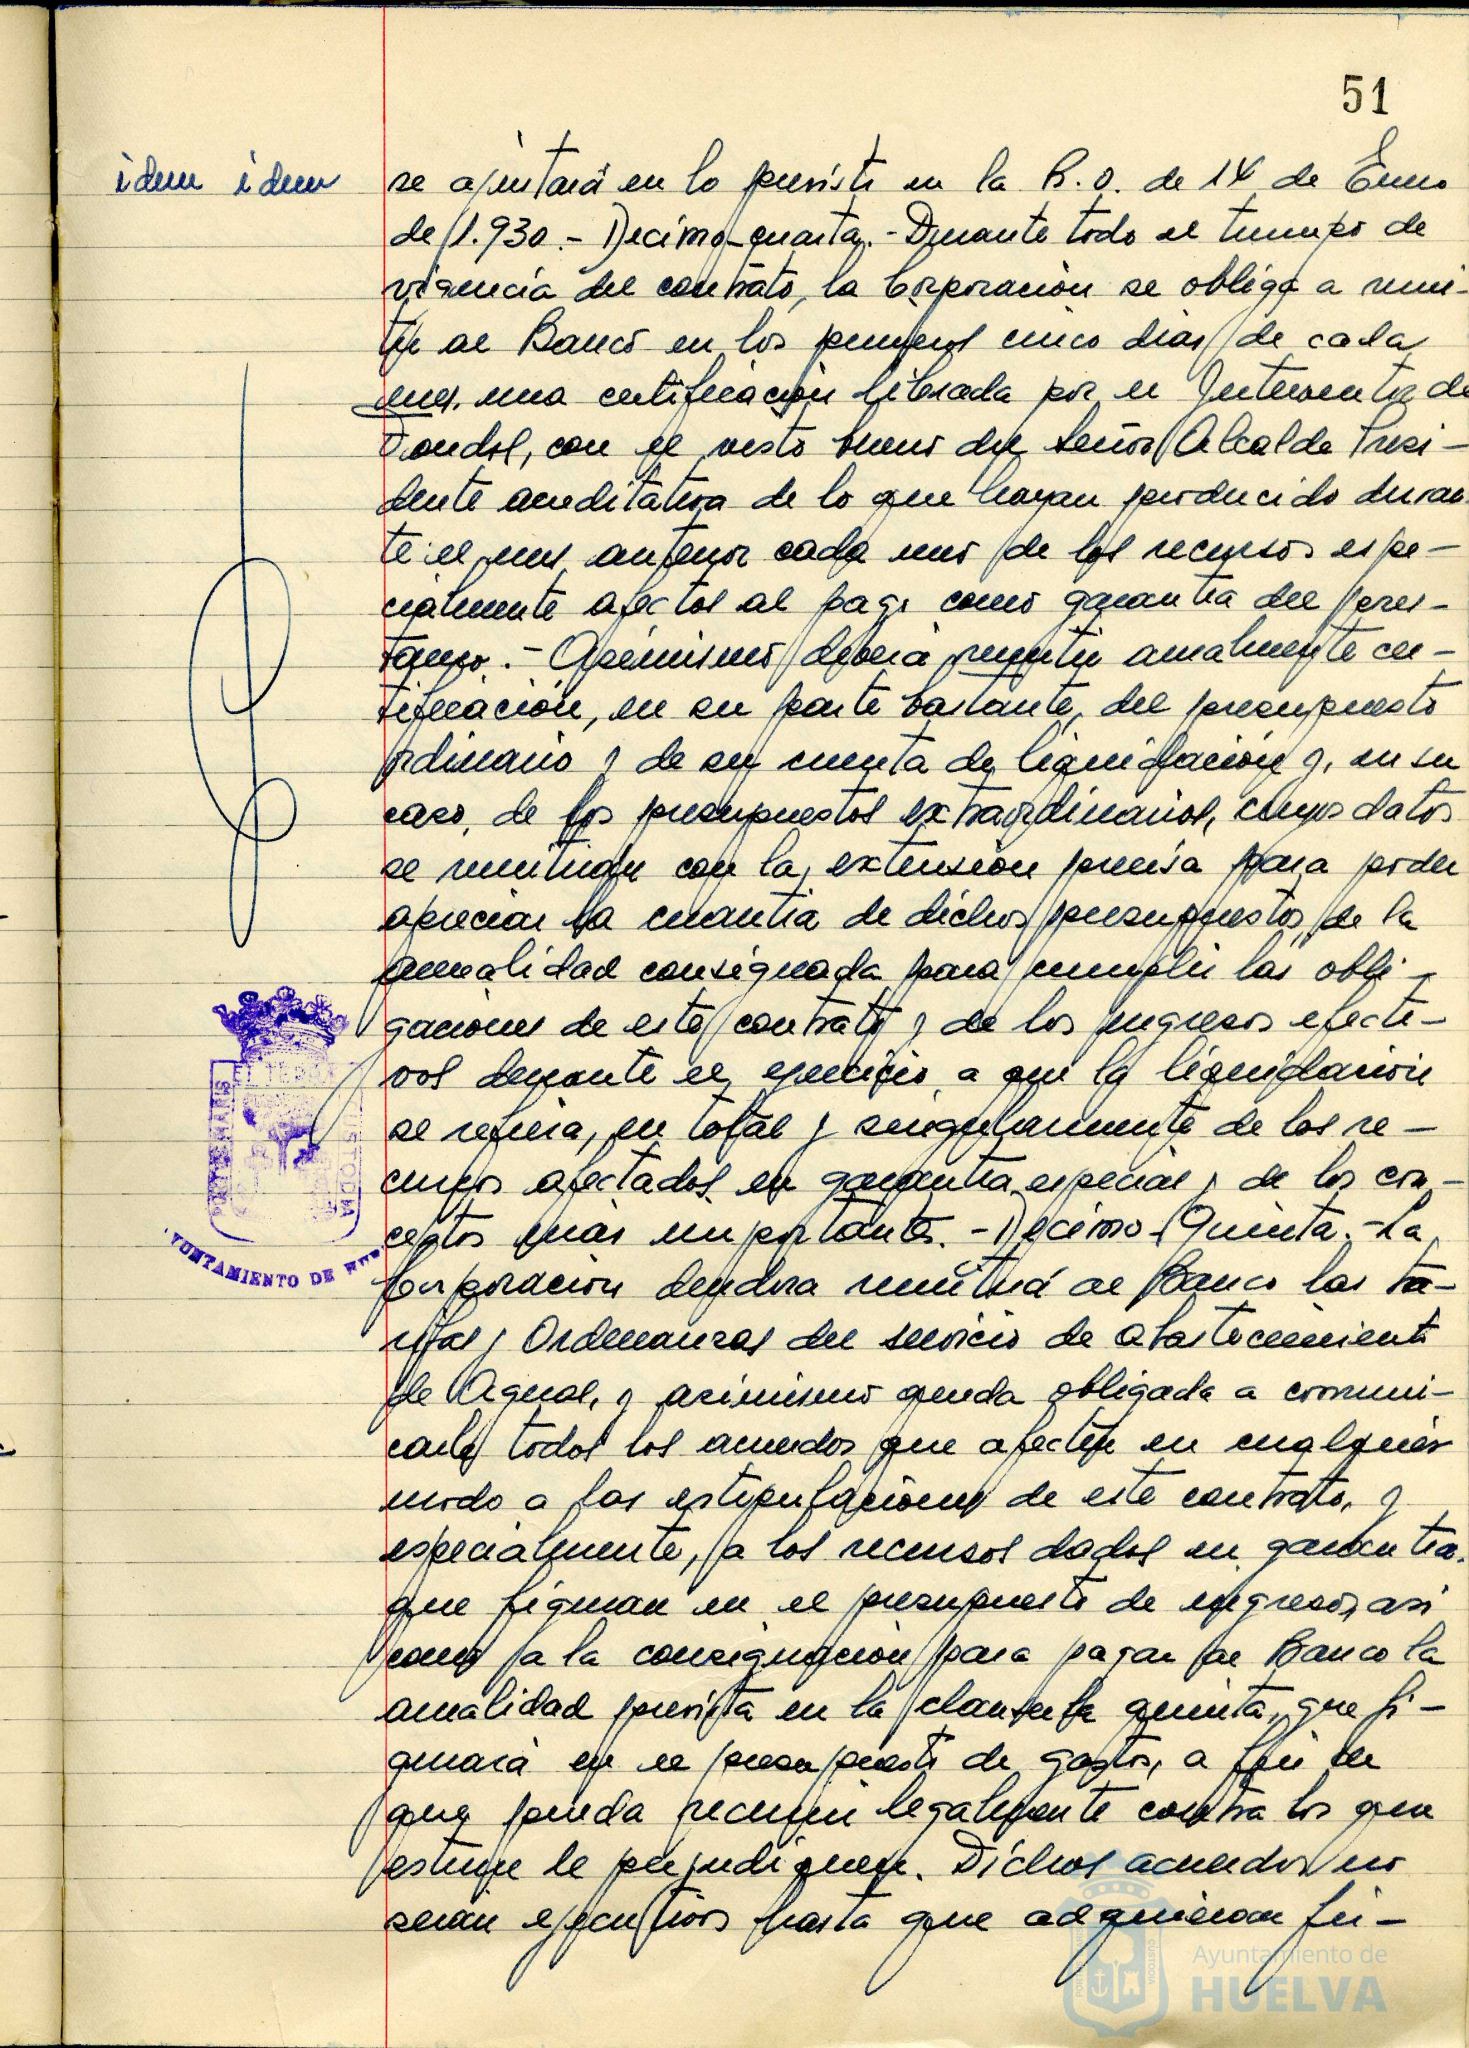 51
idem idem
se ajustará en lo previsto en la R.O. de 14 de Enero
de 1.930.- Decimo-cuarta.- Durante todo el tiempo de
vigencia del contrato, la Corporación se obliga a remi-
tir al Banco en los primeros cinco dias de cada
mes, una certificación librada por el Interventor de
Fondos, con el visto bueno del Señor Alcalde Presi-
dente acreditativa de lo que hayan producido duran-
te el mes anterior cada uno de los recursos espe-
cialmente afectos al pago como garantia del pres-
tamo.- Asimismo deberá remitir anualmente cer-
tificación, en su parte bastante, del presupuesto
ordinario y de su cuenta de liquidación y, en su
caso, de los presupuestos extraordinarios, cuyos datos
se remitirán con la extensión precisa para poder
apreciar la cuantia de dichos presupuestos, de la
anualidad consignada para cumplir las obli-
gaciones de este contrato y de los ingresos efecti-
vos durante el ejercicio a que la liquidación
se refiera, en total y singularmente de los re-
cursos afectados en garantia especial y de los con-
ceptos más importantes.- Decimo-Quinta.- La
Corporación deudora remitirá al Banco las ta-
rifas y Ordenanzas del servicio de abastecimiento
de Aguas, y asimismo queda obligada a comuni-
carle todos los acuerdos que afecten en cualquier
modo a las estipulaciones de este contrato, y
especialmente, a los recursos dados en garantia,
que figuran en el presupuesto de ingresos, asi
como a la consignación para pagar al Banco la
anualidad prevista en la clausula quinta, que fi-
gurará en el presupuesto de gastos, a fin de
que pueda recurrir legalmente contra los que
estime le perjudiquen. Dichos acuerdos no
serán ejecutivos hasta que adquieran fir-
PORTUS MARIS
ET TERRAE
CUSTODIA
AYUNTAMIENTO DE HUE
Ayuntamiento de
HUELVA